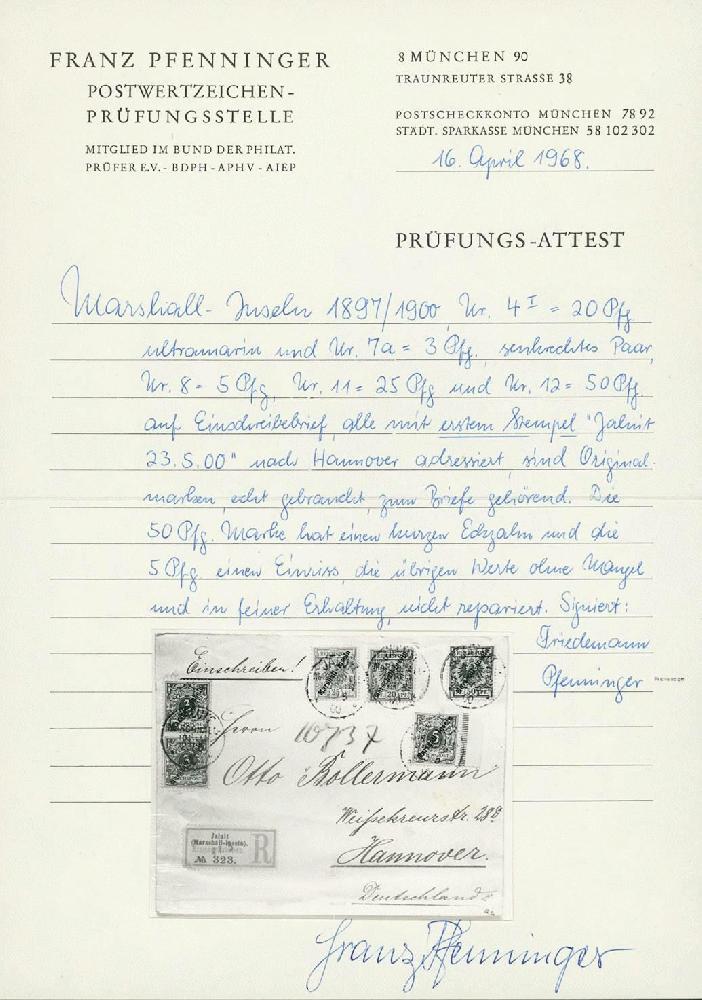 FRANZ PFENNINGER
POSTWERTZEICHEN-
PRÜFUNGSSTELLE
MITGLIED IM BUND DER PHILAT.
PRÜFER E.V. - BDPH - APHV - AIEP
8 MÜNCHEN 90
TRAUNREUTER STRASSE 38
POSTSCHECKKONTO MÜNCHEN 78 92
STÄDT. SPARKASSE MÜNCHEN 58 102 302
16. April 1968.
PRÜFUNGS-ATTEST
Marshall-Inseln 1897/1900, Nr. 4 I = 20 Pfg
ultramarin und Nr. 7a = 3 Pfg. senkrechtes Paar,
Nr. 8 = 5 Pfg, Nr. 11 = 25 Pfg und Nr. 12 = 50 Pfg.
auf Einschreibebrief, alle mit erstem Stempel "Jaluit
23.5.00" nach Hannover adressiert, sind Original-
marken, echt gebraucht, zum Briefe gehörend. Die
50 Pfg. Marke hat einen kurzen Eckzahn und die
5 Pfg. einen Einriss, die übrigen Werte ohne Mängel
und in feiner Erhaltung, nicht repariert. Signiert:
Friedemann
Pfenninger
Einschreiben!
Herrn
10737
Otto Bollermann
Weissekreuzstr. 28
Hannover.
Deutschland
Jaluit
(Marschall-Inseln).
№ 323.
R
Franz Pfenninger